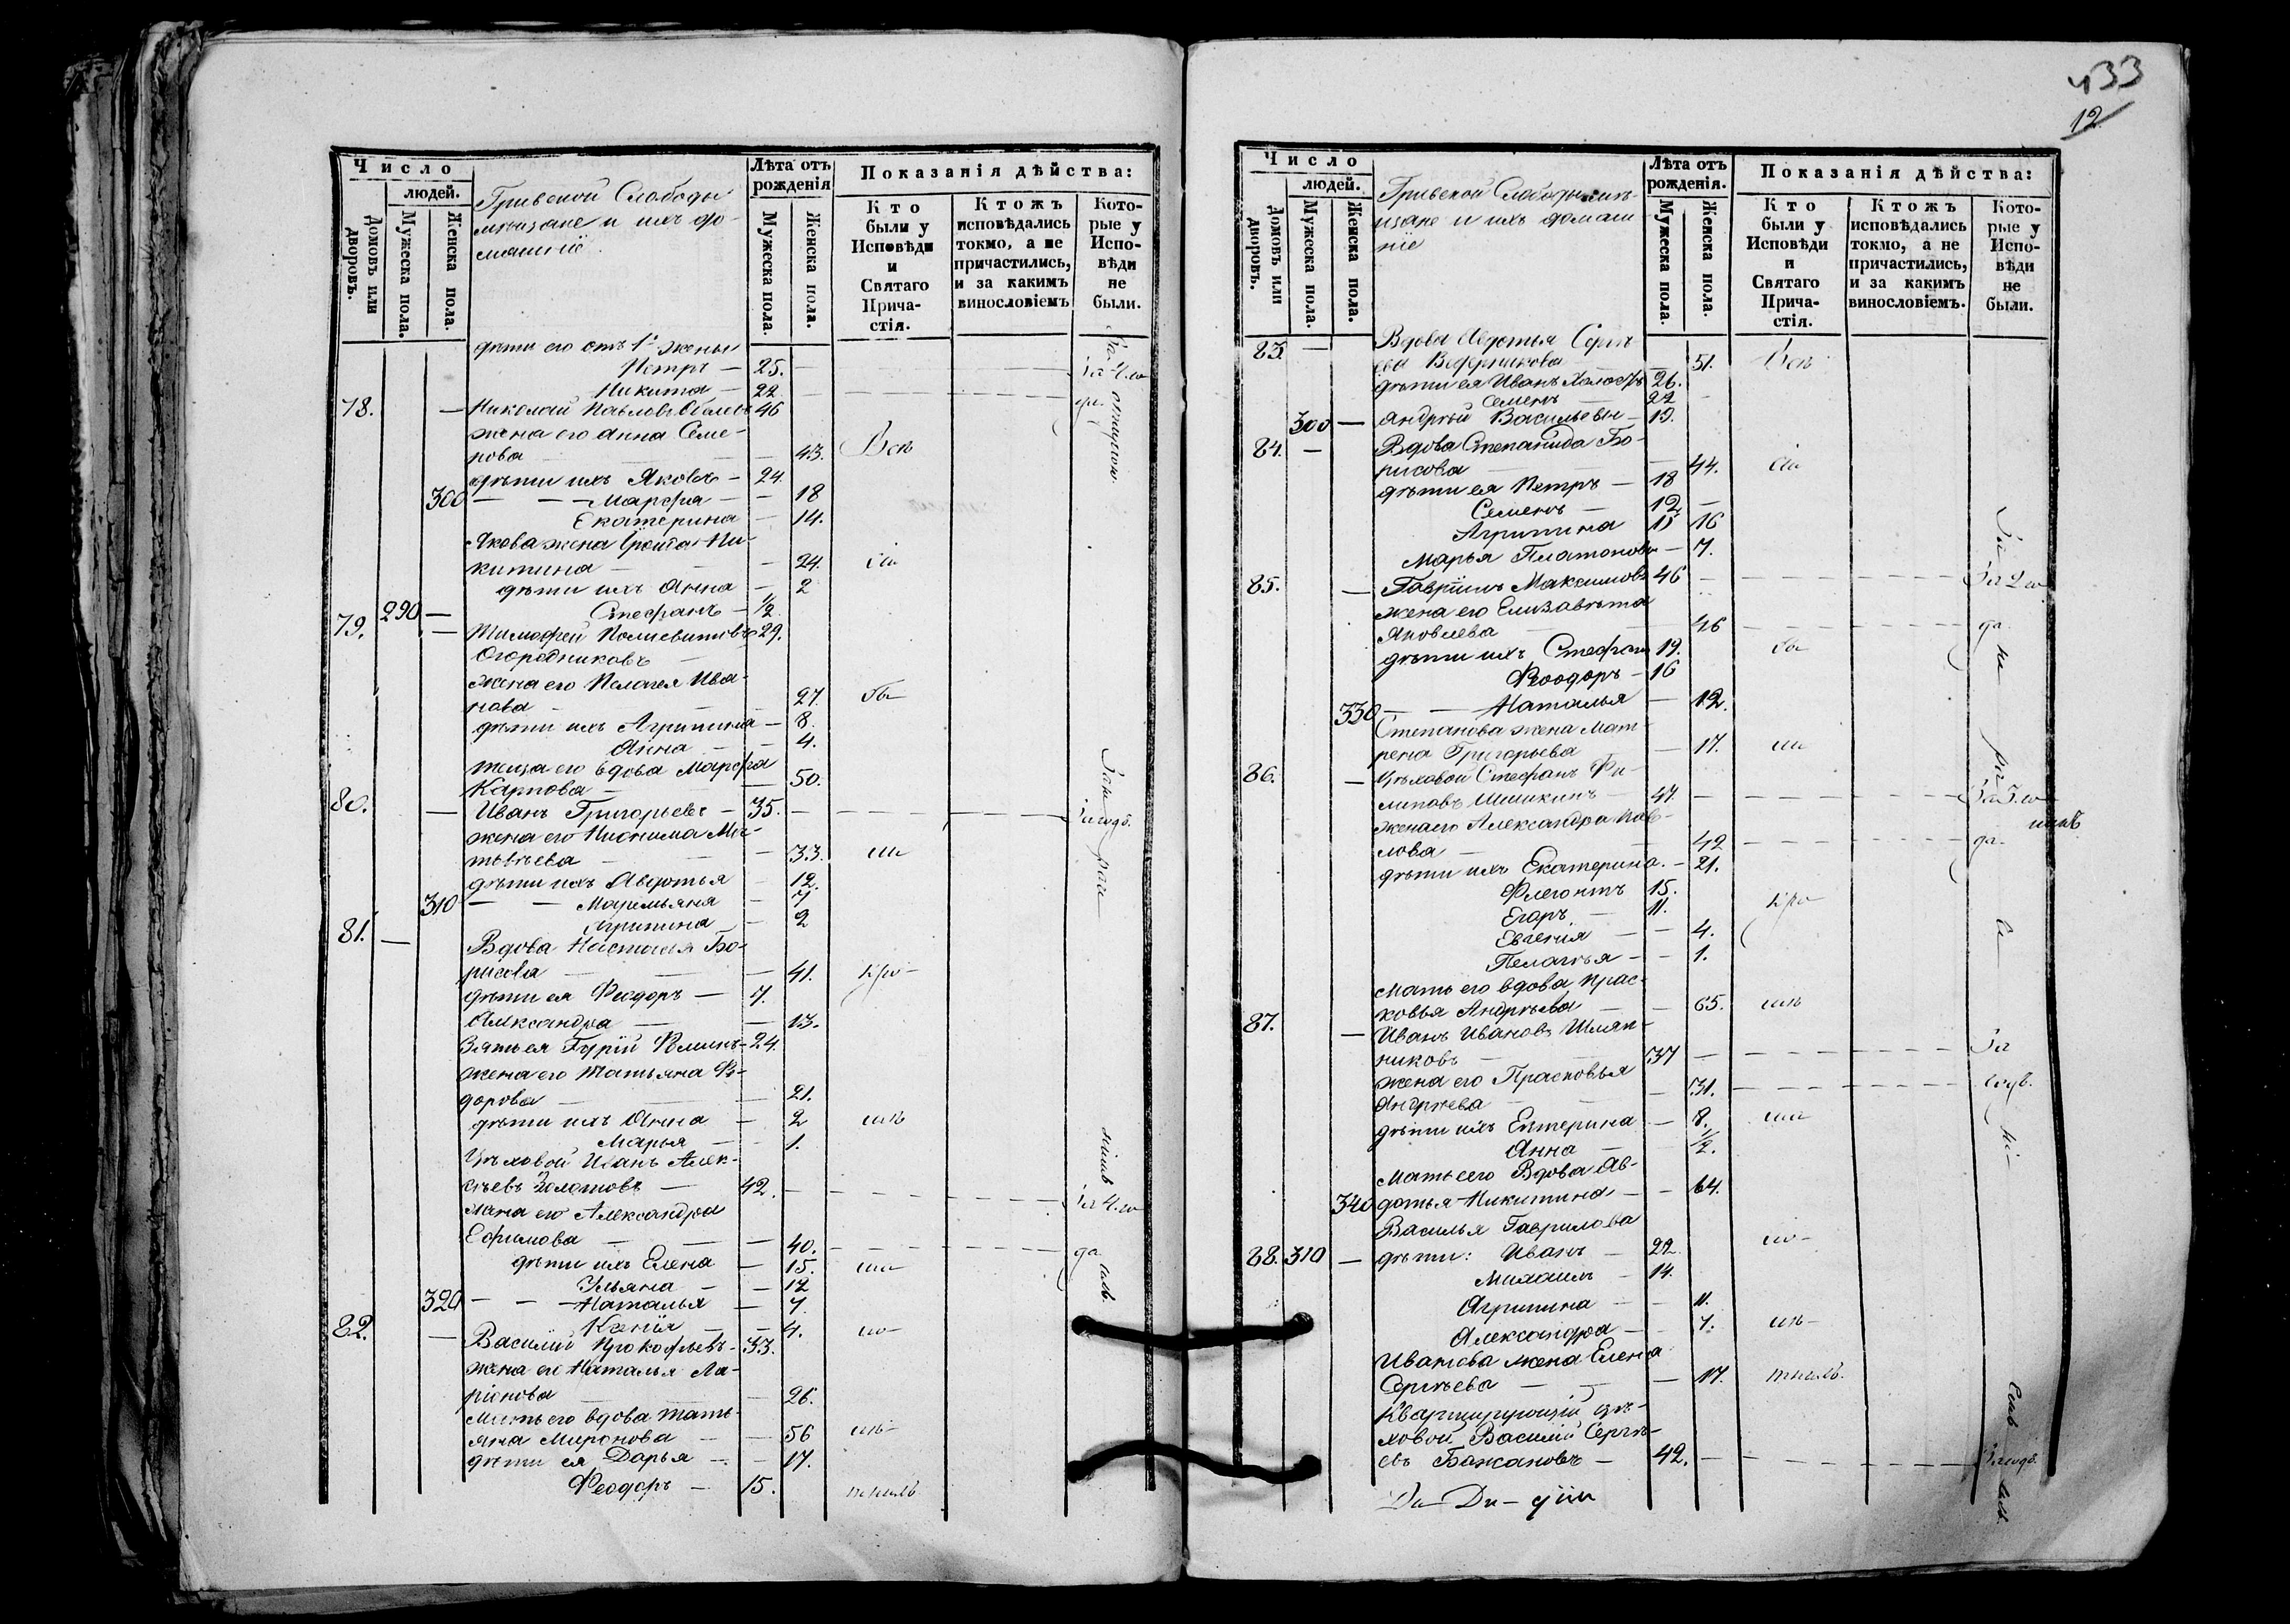 Число
людей.
Домовъ или дворовъ.
Мужеска пола.
Женска пола.
Гривской Слободы
мѣщане и ихъ до-
машніе
Лѣта отъ
рожденія
Мужеска пола.
Женска пола.
Показанія дѣйства:
Кто
были у
Исповѣди
и
Святаго
Прича-
стія.
Ктожъ
исповѣдались
токмо, а не
причастились,
и за какимъ
винословіемъ
Кото-
рые у
Испо-
вѣди
не
были.
дѣти его отъ 1й жены
Петръ — 25.
Никита — 22
78. — Николай Павловъ 46
жена его Анна Семе-
нова — 43. Всѣ
дѣти ихъ Яковъ — 24.
300 — Марѳа — 18
Екатерина — 14.
Якова жена Ни-
китина — 24.
дѣти ихъ Анна — 2
290 — Стефанъ — 1/2
79. — Тимофей 29.
Огородниковъ —
жена его Пелагея Ива-
нова — 27.
дѣти ихъ Агрипина — 8.
Анна — 4.
теща его вдова Марѳа
Карпова — 50.
80. — Иванъ Григорьевъ — 35.
жена его Ма-
твѣева — 33.
дѣти ихъ Авдотья — 12.
310 — Маремьяна — 7
Агрипина — 2
81. — Вдова Настасья Бо-
рисова — 41.
дѣти ея Феодоръ — 7.
Александра — 13.
Зять ея Гурій — 24.
жена его Татьяна Фе-
дорова — 21.
дѣти ихъ Анна — 2
Марья — 1.
Цѣховой Иванъ Алек-
сѣевъ Золотовъ — 42.
жена его Александра
Ефимова — 40.
да
дѣти ихъ Елена — 15.
Ульяна — 12
320 — Наталья — 7.
Ксенія — 4.
82. — Василій Прокофьевъ — 33.
жена его Наталья Ла-
ріонова — 26.
Мать его вдова Тать-
яна Миронова — 56
дѣти ея Дарья — 17.
Феодоръ — 15.
433
12
Число
людей.
Домовъ или дворовъ.
Мужеска пола.
Женска пола.
Гривской Слободы мѣ-
щане и ихъ домаш-
ніе
Лѣта отъ
рожденія.
Мужеска пола.
Женска пола.
Показанія дѣйства:
Кто
были у
Исповѣди
и
Святаго
Прича-
стія.
Ктожъ
исповѣдались
токмо, а не
причастились,
и за какимъ
винословіемъ.
Кото-
рые у
Испо-
вѣди
не
были.
83. — Вдова Авдотья Сергѣ-
ева Ведерникова — 51. Всѣ
дѣти ея Иванъ Холостъ 26.
Семенъ — 22
300 — Андрей Васильевы — 19.
84. — Вдова Степанида Бо-
рисова — 44.
дѣти ея Петръ — 18
Семенъ — 12
Агрипина 16
Марья Платонова — 7.
85. — Гавріилъ Максимовъ 46
жена его Елизавѣта
Яковлева — 46
да
дѣти ихъ Стефанъ 19.
Феодоръ — 16
330 — Наталья — 12.
Степанова жена Мат-
рена Григорьева — 17.
86. — Цѣховой Стефанъ Фи-
липовъ Шишкинъ — 47.
жена его Александра Пав-
лова — 42
да
дѣти ихъ Екатерина — 21.
Флегонтъ 15.
Егоръ — 11.
Евгенія — 4.
Пелагѣя — 1.
Мать его вдова Прас-
ковья Андрѣева — 65.
87. — Иванъ Ивановъ Шляп-
никовъ — 37
жена его Прасковья
Андрѣева — 31.
дѣти ихъ Екатерина — 8.
Анна — 1/2.
Мать его Вдова Ав-
340 дотья Никитина — 64.
Василья Гаврилова
88. 310 — дѣти: Иванъ — 22
Михаилъ — 14.
Агрипина — 11.
Александра — 7.
Иванова жена Елена
Сергѣева — 17.
Квартирующій цѣ-
ховой Василій Сергѣ-
евъ Бажановъ — 42.